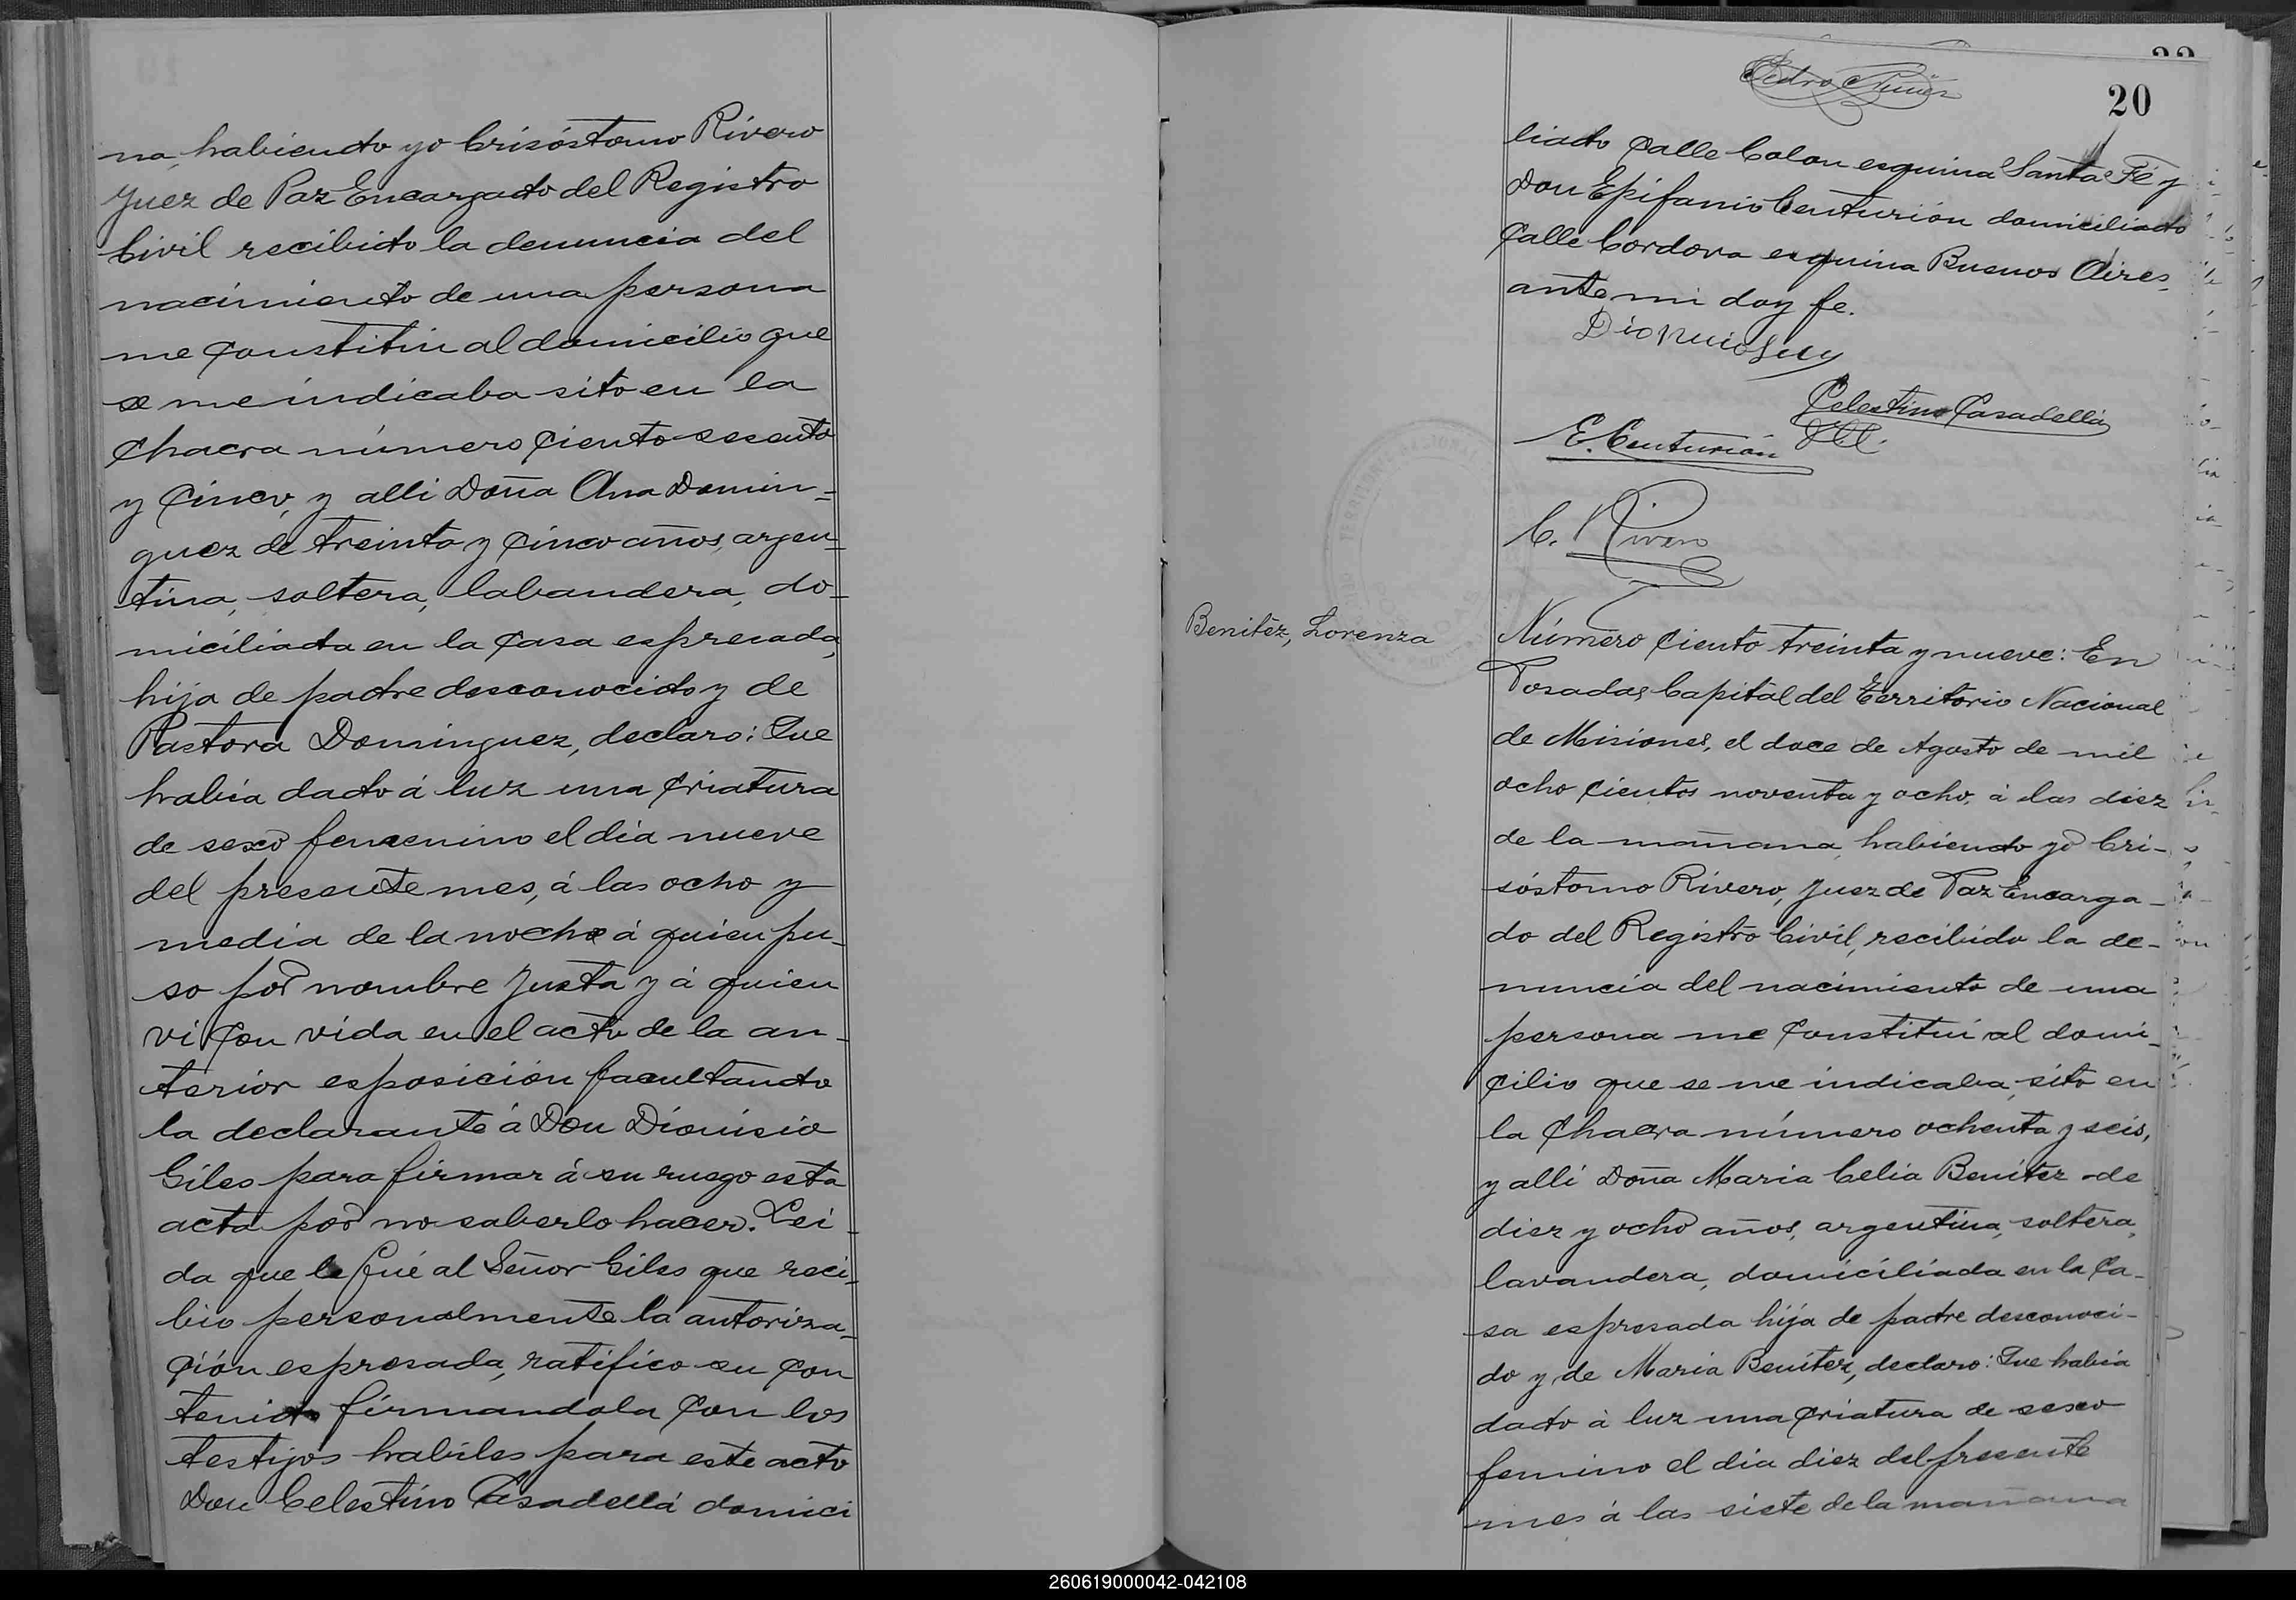 na, habiendo yo Crisóstomo Rivero
Juez de Paz Encargado del Registro
Civil recibido la denuncia del
nacimiento de una persona
me constitui al domicilio que
se me indicaba sito en la
chacra número ciento sesenta
y cinco, y alli Doña Ana Domin=
guez de treinta y cinco años, argen-
tina, soltera, labandera, do-
miciliada en la casa espresada,
hija de padre desconocido y de
Pastora Dominguez, declaro: Que
habia dado á luz una criatura
de sexo femenino el dia nueve
del presente mes, á las ocho y
media de la noche á quien pu-
so por nombre Justa y á quien
vi con vida en el acto de la an-
terior esposición facultando
la declarante á Don Dionisio
Giles para firmar á su ruego esta
acta por no saberlo hacer. Lei-
da que le fué al Señor Giles que reci-
bio personalmente la autoriza-
ción espresada, ratifico su con
tenido firmandola con los
testijos habiles para este acto
Don Celestino Casadellá domici
20
liado calle Colon esquina Santa Fé y
Don Epifanio Centurión domiciliado
calle Cordova esquina Buenos Aires,
ante mi doy fe.
Celestino Casadellá
E. Centurión
C. Rivero
Benitéz, Lorenza
Número ciento treinta y nueve: En
Posadas, Capital del Territorio Nacional
de Misiones, el doce de Agosto de mil
ocho cientos noventa y ocho, á las diez
de la mañana, habiendo yo Cri-
sóstomo Rivero, Juez de Paz Encarga-
do del Registro Civil, recibido la de-
nuncia del nacimiento de una
persona me constitui al domi-
cilio que se me indicaba, sito en
la chacra número ochenta y seis,
y alli Doña Maria Celia Benitez de
diez y ocho años, argentina, soltera,
lavandera, domiciliada en la ca-
sa espresada hija de padre desconoci-
do y de Maria Benitez, declaro: Que habia
dado á luz una criatura de sexo
femino el dia diez del presente
mes á las siete de la mañana
260619000042-042108